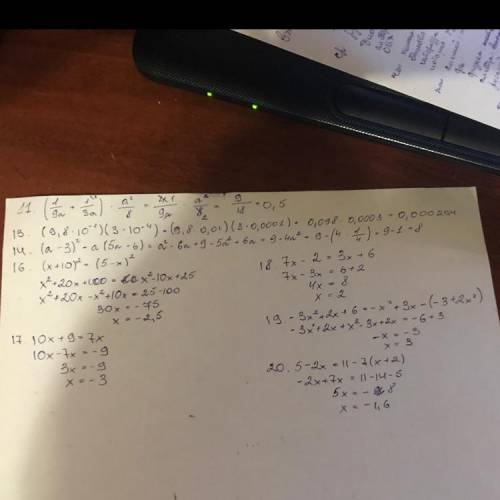 11. (1/9a + 1/3a) · a²/8 = 2x1/9a · a²/8 = 9/18 = 0,5
13. (9,8 · 10⁻²)(3 · 10⁻⁴) = (9,8 · 0,01)(3 · 0,0001) = 0,098 · 0,0003 = 0,0000294
14. (a - 3)² - a(5a - 6) = a² - 6a + 9 - 5a² + 6a = 9 - 4a² = 9 - (4 · 1/4) = 9 - 1 = 8
16. (x+10)² = (5-x)²
x² + 20x + 100 = x² - 10x + 25
x² + 20x - x² + 10x = 25 - 100
30x = -75
x = -2,5
17. 10x + 9 = 7x
10x - 7x = -9
3x = -9
x = -3
18. 7x - 2 = 3x + 6
7x - 3x = 6 + 2
4x = 8
x = 2
19. -3x² + 2x + 6 = -x² + 3x - (-3 + 2x²)
-3x² + 2x + x² - 3x + 2x = -6 + 3
-x = -3
x = 3
20. 5 - 2x = 11 - 7(x+2)
-2x + 7x = 11 - 14 - 5
5x = -8
x = -1,6